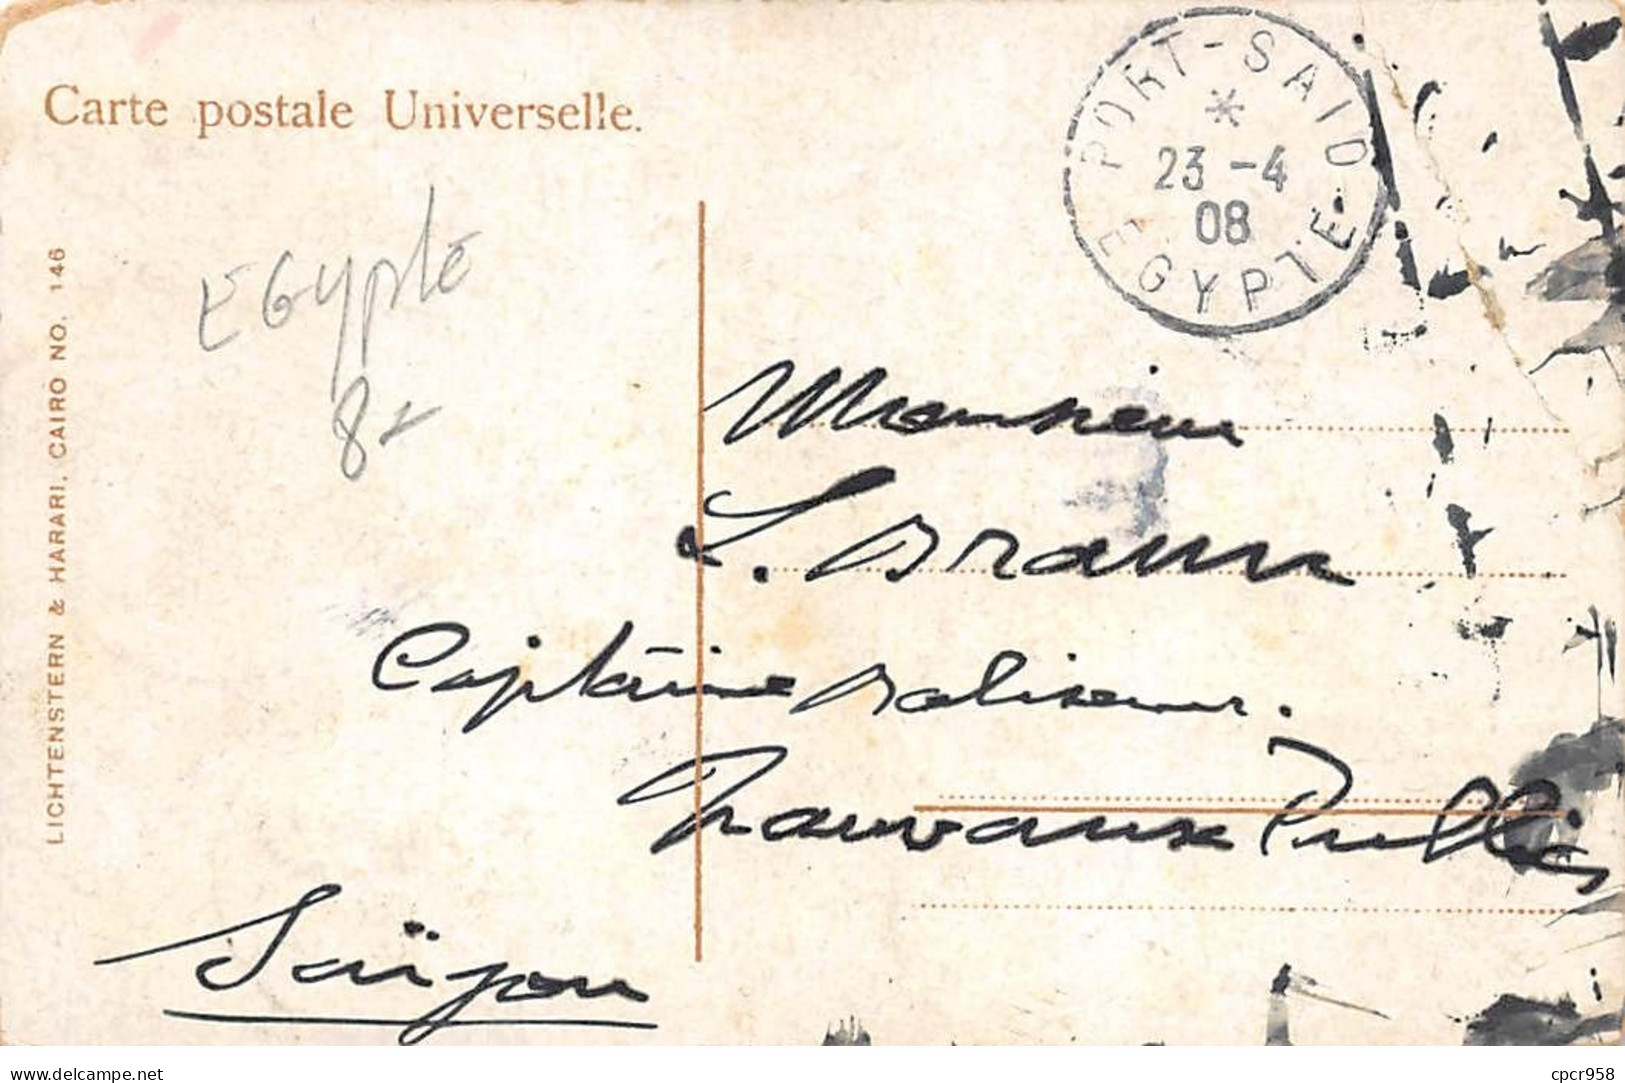 Carte postale Universelle.
PORT-SAID
*
23 -4
08
EGYPTE
EGypte
8
LICHTENSTERN & HARARI, CAIRO NO. 146
Monsieur
L. Braun
Capitaine Baliseur.
Travaux Publics
Saïgon
delcampe.net
cpcr958